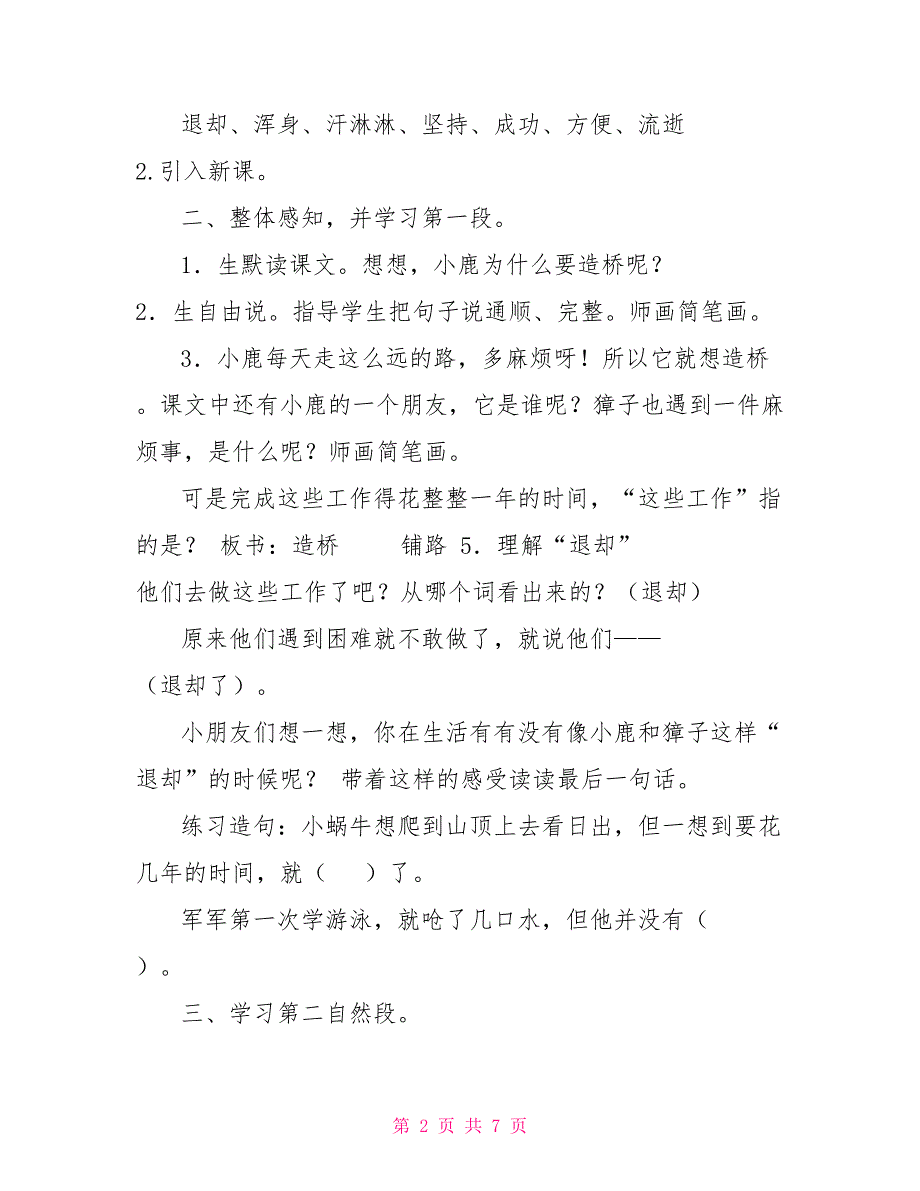 退却、浑身、汗淋淋、坚持、成功、方便、流逝
2.引入新课。
二、整体感知，并学习第一段。
1．生默读课文。想想，小鹿为什么要造桥呢？
2．生自由说。指导学生把句子说通顺、完整。师画简笔画。
3．小鹿每天走这么远的路，多麻烦呀！所以它就想造桥
。课文中还有小鹿的一个朋友，它是谁呢？獐子也遇到一件麻
烦事，是什么呢？师画简笔画。
可是完成这些工作得花整整一年的时间，“这些工作”指
的是？ 板书：造桥　　铺路 5．理解“退却”
他们去做这些工作了吧？从哪个词看出来的？（退却）
原来他们遇到困难就不敢做了，就说他们——
（退却了）。
小朋友们想一想，你在生活有有没有像小鹿和獐子这样“
退却”的时候呢？ 带着这样的感受读读最后一句话。
练习造句：小蜗牛想爬到山顶上去看日出，但一想到要花
几年的时间，就（　 ）了。
军军第一次学游泳，就呛了几口水，但他并没有（
）。
三、学习第二自然段。
第 2 页 共 7 页